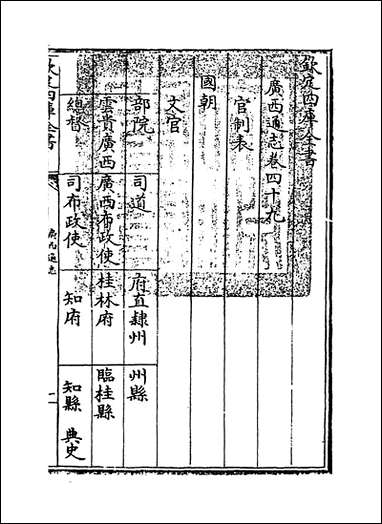 欽定四庫全書
廣西通志卷四十九
官制表
國朝
文官
部院 司道 府直隸州 州縣
雲貴廣西 廣西布政使 桂林府 臨桂縣
總督 司布政使 知府 知縣 典史
欽定四庫全書
廣西通志
一